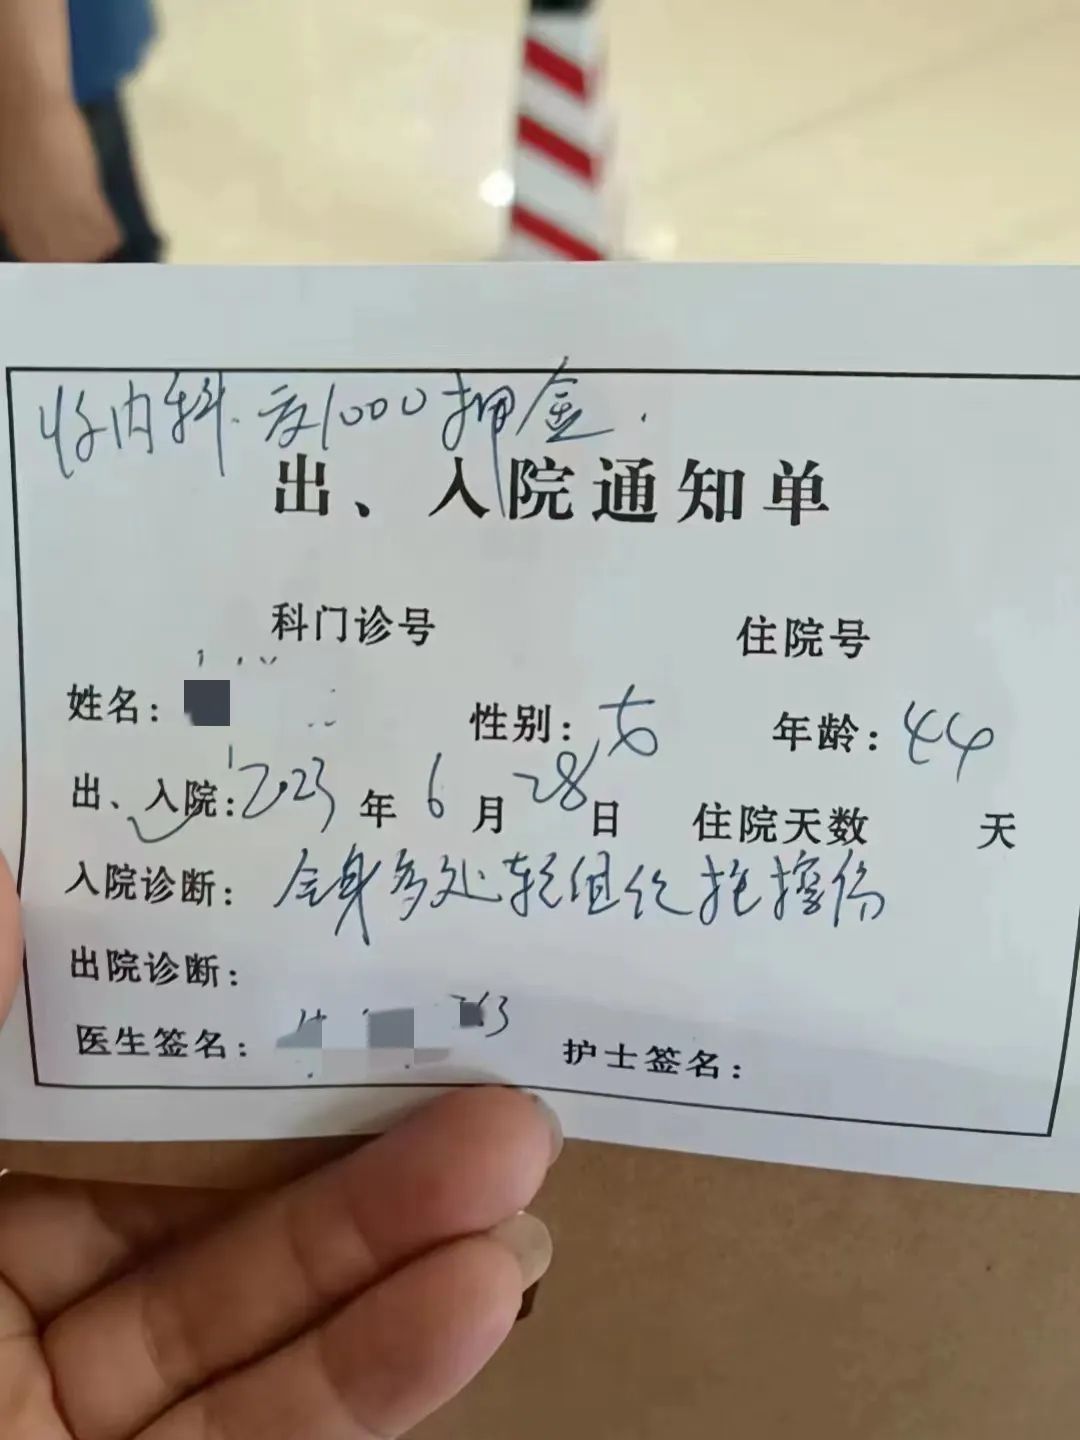 收内科.交1000押金.
出、入院通知单
科门诊号 住院号
姓名: 性别:女 年龄:44
出、入院:2023年6月28日 住院天数 天
入院诊断:全身多处软组织挫擦伤
出院诊断:
医生签名: 护士签名: